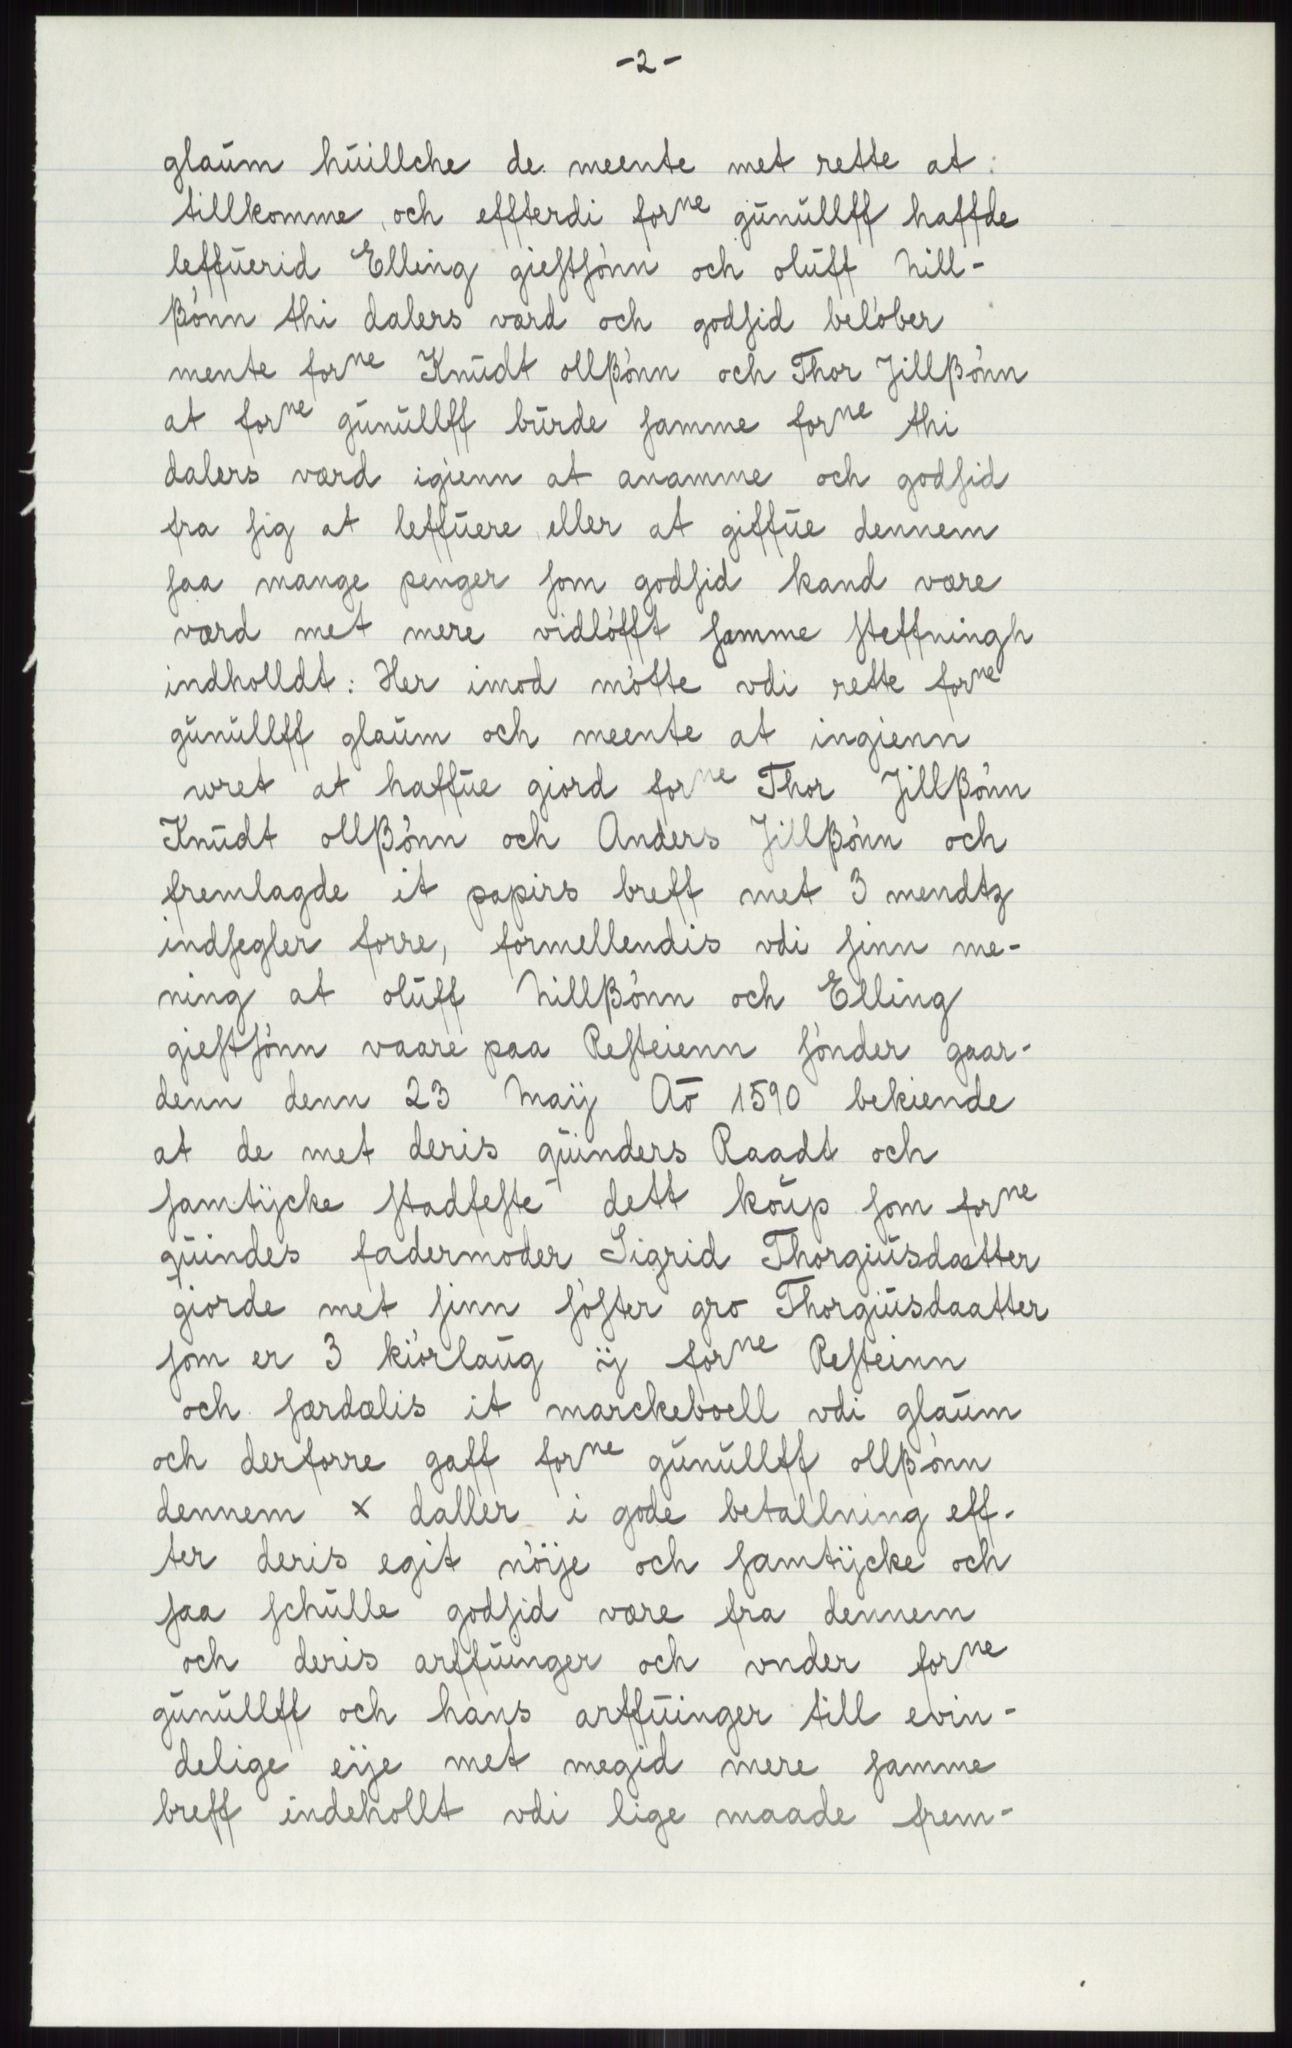 -2-
glaŭm hŭillche de meente met rette at
tillkomme, och effterdi forⁿᵉ gŭnŭllff haffde
leffŭerid Elling gieſtſönn och olŭff Nill-
ßönn thi dalers værd och godſid belöber
mente forⁿᵉ Knŭdt ollßönn och Thor Jillßönn
at forⁿᵉ gŭnŭllff bŭrde ſamme forⁿᵉ thi
dalers værd igienn at anamme och godſid
fra ſig at leffŭere, eller at giffŭe dennem
ſaa mange penger ſom godſid kand være
værd met mere vidlöfft ſamme ſteffningh
indholldt: Her imod mötte vdi rette forⁿᵉ
gŭnŭllff glaŭm och meente at ingienn
wret at haffŭe giord forⁿᵉ Thor Jillßönn
Knŭdt ollßönn och Anders Jillßönn och
fremlagde it papirs breff met 3 mendtz
indſegler forre, formellendis vdi ſinn me-
ning at olŭff Nillßönn och Elling
gieſtſönn vaare paa Reſteienn ſönder gaar-
denn denn 23 Maÿ Aō 1590 bekiende
at de met deris qŭinders Raadt och
ſamtÿcke ſtadfeſte dett köŭp ſom forⁿᵉ
qŭindes fadermoder Sigrid Thorgiŭsdaatter
giorde met ſinn ſöſter gro Thorgiŭsdaatter
ſom er 3 kiörlaŭg ÿ forⁿᵉ Reſteinn
och ſærdælis it marckeboell vdi glaŭm
och derforre gaff forⁿᵉ gŭnŭllff ollßönn
dennem x daller i gode betallning eff-
ter deris egit nöÿe och ſamtÿcke och
ſaa ſchŭlle godſid være fra dennem
och deris arffŭinger och vnder forⁿᵉ
gŭnŭllff och hans arffŭinger till evin-
delige eÿe met megid mere ſamme
breff indehollt vdi lige maade frem-